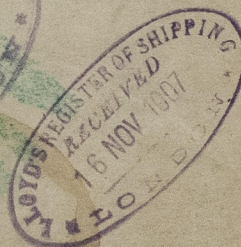 LLOYD'S REGISTER OF SHIPPING
RECEIVED
16 NOV 1907
LONDON